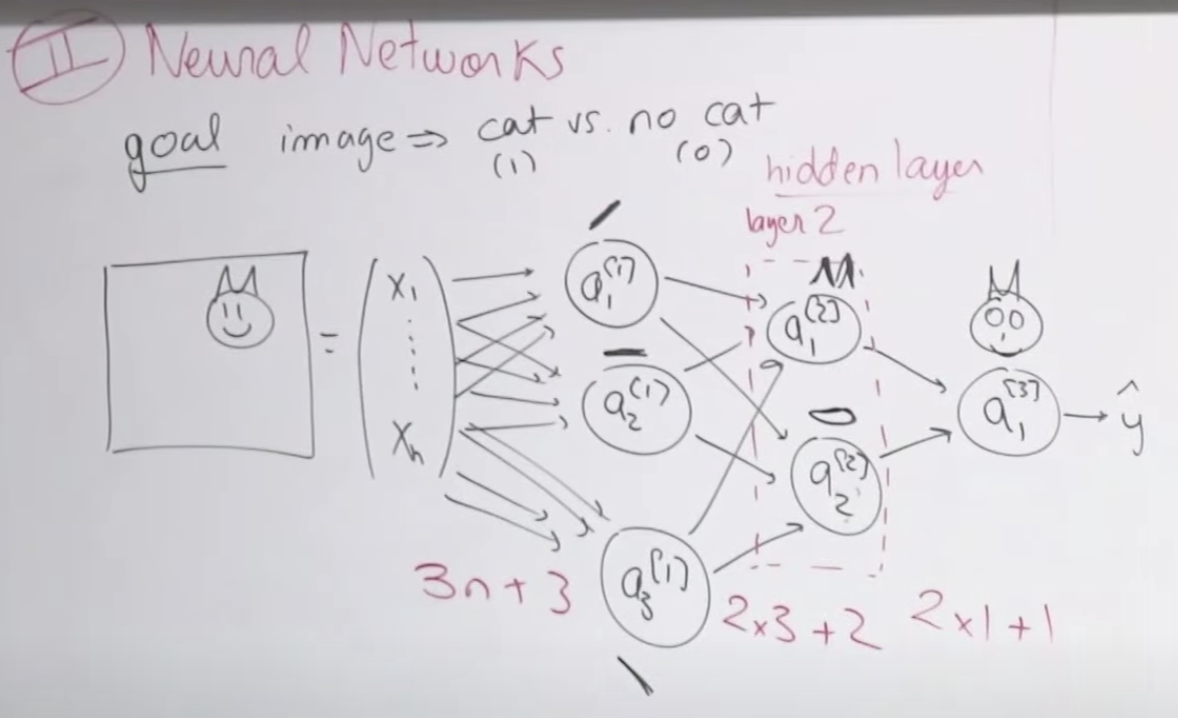 II Neural Networks
goal image ⇒ cat vs. no cat
(1) (0)
hidden layer
layer 2
x₁
xₙ
=
a₁^[1]
a₂^[1]
a₃^[1]
a₁^[2]
a₂^[2]
a₁^[3]
ŷ
3n + 3
2x3 + 2
2x1 + 1